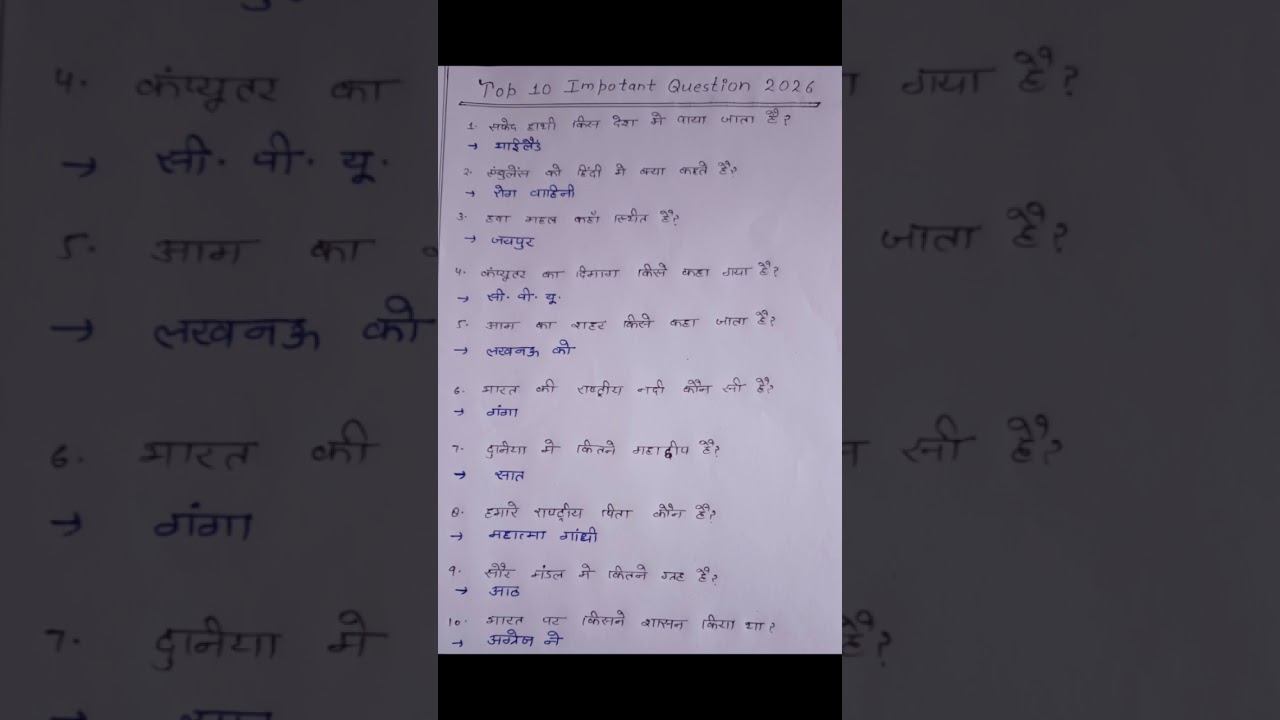 Top 10 Impotant Question 2026
1. सफेद हाथी किस देश मे पाया जाता है?
→ थाईलैंड
2. एंबुलेंस को हिंदी मे क्या कहते है?
→ रोग वाहिनी
3. हवा महल कहाँ स्थित है?
→ जयपुर
4. कंप्यूटर का दिमाग किसे कहा गया है?
→ सी. पी. यू.
5. आम का शहर किसे कहा जाता है?
→ लखनऊ को
6. भारत की राष्ट्रीय नदी कौन सी है?
→ गंगा
7. दुनिया मे कितने महाद्वीप है?
→ सात
8. हमारे राष्ट्रीय पिता कौन है?
→ महात्मा गांधी
9. सौर मंडल मे कितने ग्रह है?
→ आठ
10. भारत पर किसने शासन किया था?
→ अंग्रेज ने